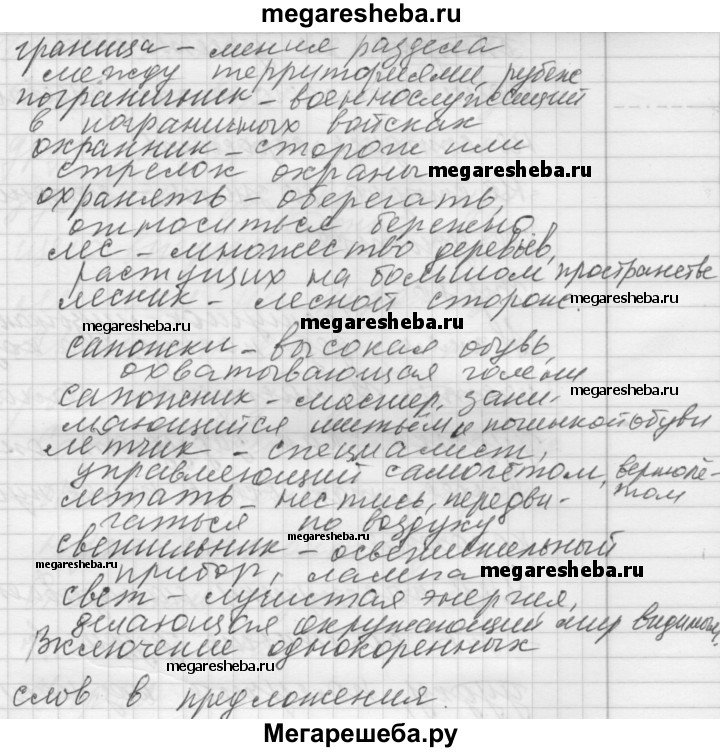 megaresheba.ru
граница – линия раздела
между территориями, рубеж
пограничник – военнослужащий
в пограничных войсках
охранник – сторож или
стрелок охраны
megaresheba.ru
охранять – оберегать,
относиться бережно
лес – множество деревьев,
растущих на большом пространстве
лесник – лесной сторож.
megaresheba.ru
megaresheba.ru
megaresheba.ru
сапожки – высокая обувь,
охватывающая голени
сапожник – мастер, зани-
megaresheba.ru
мающийся шитьём и починкой обуви
лётчик – специалист,
управляющий самолётом, вертолё-
том
летать – нестись, передви-
гаться по воздуху
megaresheba.ru
светильник – осветительный
megaresheba.ru
прибор, лампа
megaresheba.ru
свет – лучистая энергия,
делающая окружающий мир видимым,
Включение однокоренных
megaresheba.ru
megaresheba.ru
слов в предложения.
Мегарешеба.ру